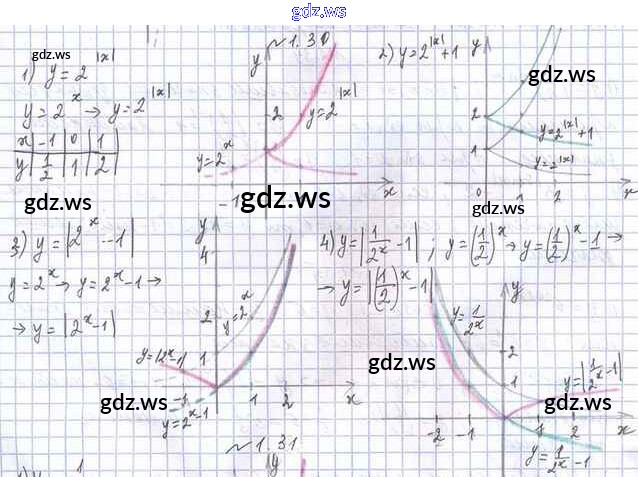 gdz.ws
№1.30
1) y = 2^|x|
y = 2^x → y = 2^|x|
x | -1 | 0 | 1
y | 1/2 | 1 | 2
y
2
y=2^|x|
y=2^x
-1
1
x
2) y = 2^|x| + 1
y
2
1
y=2^|x|+1
y=2^|x|
0
1
2
x
gdz.ws
gdz.ws
gdz.ws
gdz.ws
gdz.ws
3) y = |2^x - 1|
y = 2^x → y = 2^x - 1 →
→ y = |2^x - 1|
y
4
2
1
y=2^x
y=|2^x-1|
-1
1
2
x
y=2^x-1
4) y = |1/2^x - 1| ; y = (1/2)^x → y = (1/2)^x - 1 →
→ y = |(1/2)^x - 1|
y
y=1/2^x
2
1
y=|1/2^x-1|
-2
-1
1
2
x
y=1/2^x-1
gdz.ws
gdz.ws
gdz.ws
№1.31
y